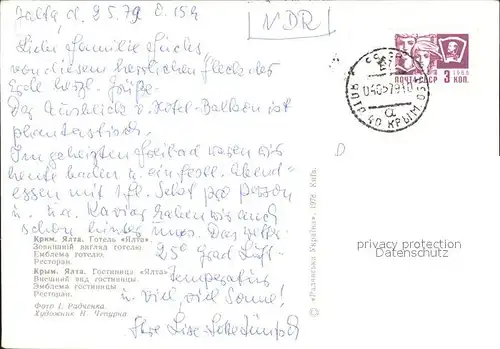 Jalta, d. 25.79
NDR
Liebe Familie Fuchs,
von diesem herrlichen Fleck der
Erde herzl. Grüße.
Der Ausblick v. Hotel-Balkon ist
phantastisch.
Im geheizten Freibad waren wir
heute baden u. ein festl. Abend-
essen mit 1 Fl. Sekt pro Person
u. Kaviar haben wir auch
schon hinter uns. Das
25° Grad Luft-
Temperatur
u. viel, viel Sonne!
Ihre
ПОЧТА СССР 3 КОП.
1966
КРЫМ
D
Крим. Ялта. Готель «Ялта»
Зовнішній вигляд готелю.
Емблема готелю.
Ресторан.
Крым. Ялта. Гостиница «Ялта»
Внешний вид гостиницы
Эмблема гостиницы
Ресторан.
Фото І. Радченка
Художник Н. Чепурна
© «Радянська Україна», 1978. Київ.
privacy protection
Datenschutz